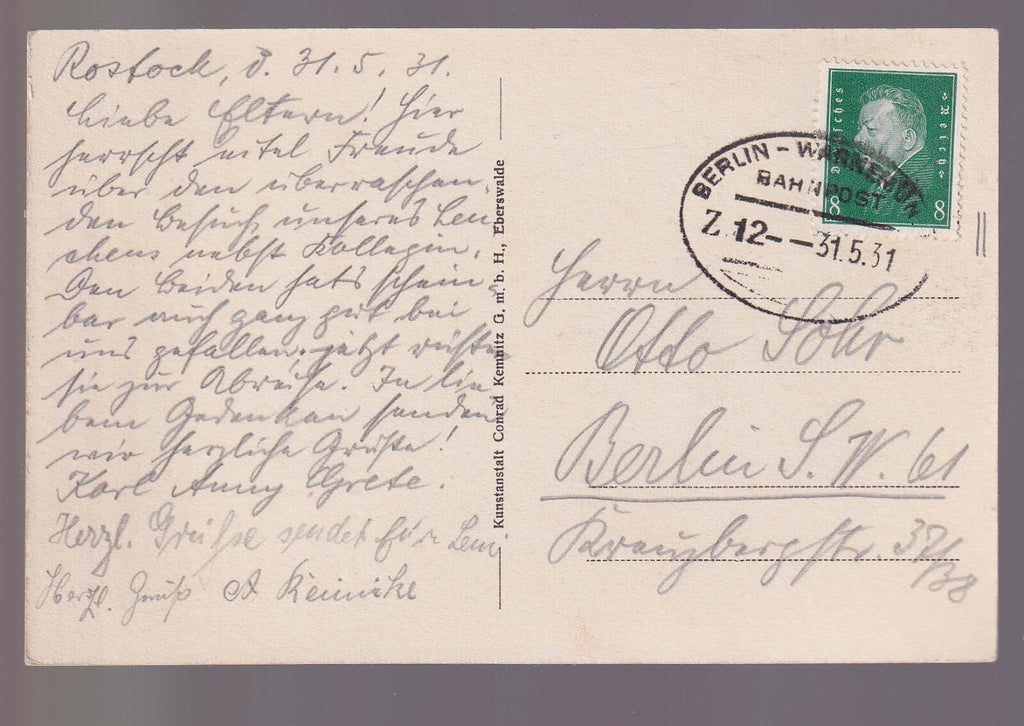 Rostock, d. 31.5.31.
Liebe Eltern! Hier
herrscht eitel Freude
über den überraschen-
den Besuch unseres Len-
chens nebst Kollegin.
Den Beiden hats schein-
bar auch ganz gut bei
uns gefallen; jetzt rüsten
sie zur Abreise. In lie-
bem Gedenken senden
wir herzliche Grüße!
Karl Anny Grete.
Herzl. Grüsse sendet Leni
Herzl. Gruß A Reinicke
Kunstanstalt Conrad Kemnitz G. m. b. H., Eberswalde
Deutsches Reich
8 8
BERLIN - WARNEMÜN
BAHNPOST
Z. 12 - - 31.5.31
Herrn
Otto Löhr
Berlin S.W. 61
Kreuzbergstr. 37/38